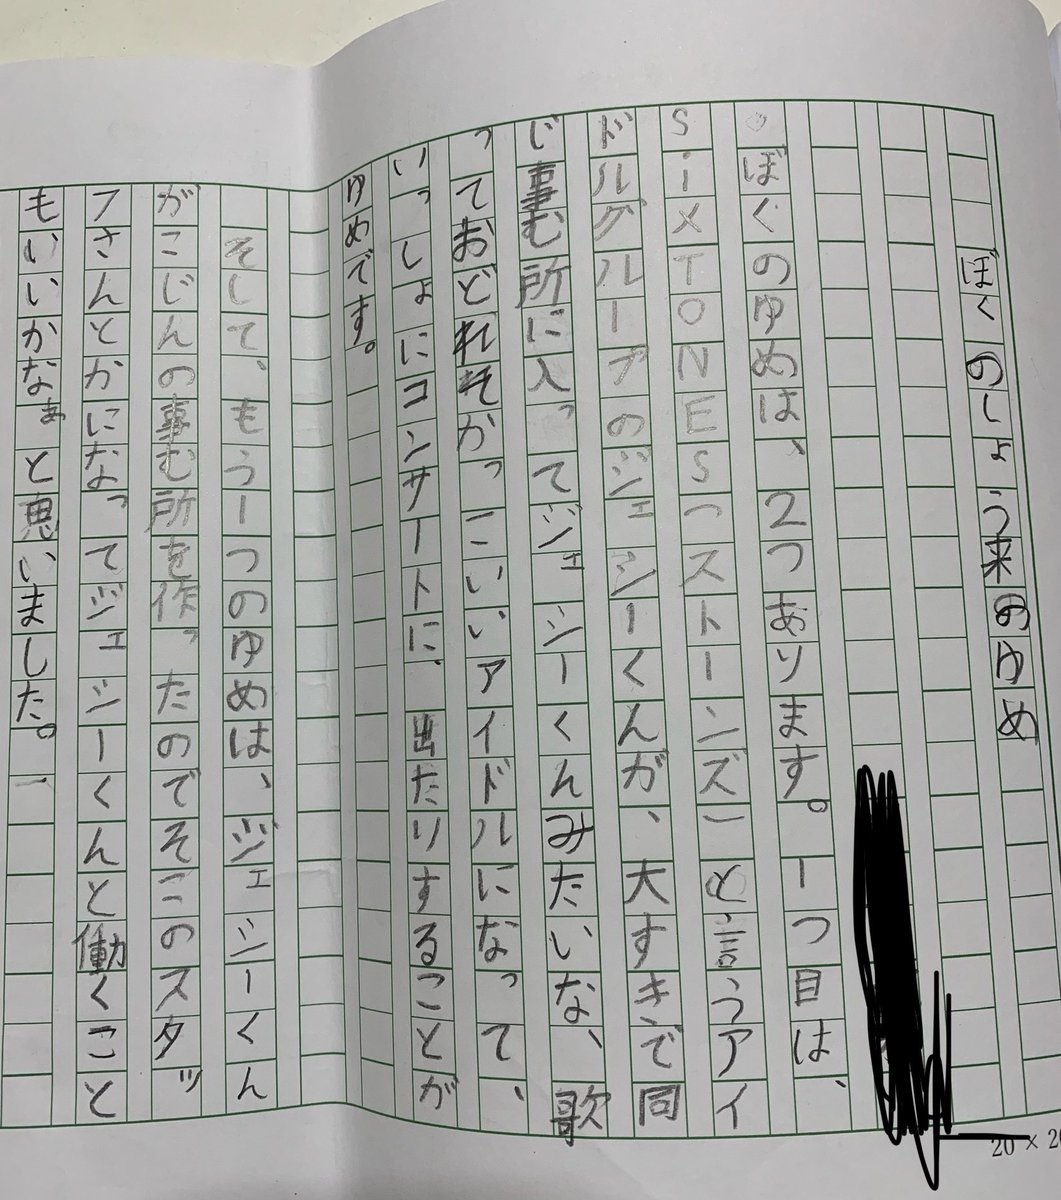 ぼくのしょう来のゆめ
ぼくのゆめは、2つあります。一つ目は、
SiXTONES(ストーンズ)と言うアイ
ドルグループのジェシーくんが、大すきで同
じ事む所に入ってジェシーくんみたいな、歌
っておどれそかっこいいアイドルになって、
いっしょにコンサートに、出たりすることが
ゆめです。
そして、もう一つのゆめは、ジェシーくん
がこじんの事む所を作ったのでそこのスタッ
フさんとかになってジェシーくんと働くこと
もいいかなぁと思いました。
20×20